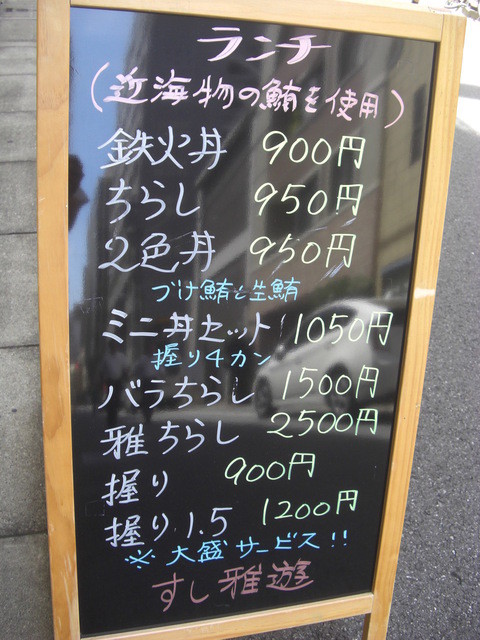 ランチ
(近海物の鮪を使用)
鉄火丼 900円
ちらし 950円
2色丼 950円
づけ鮪と生鮪
ミニ丼セット 1050円
握り4カン
バラちらし 1500円
雅ちらし 2500円
握り 900円
握り1.5 1200円
※大盛サービス!!
すし雅遊